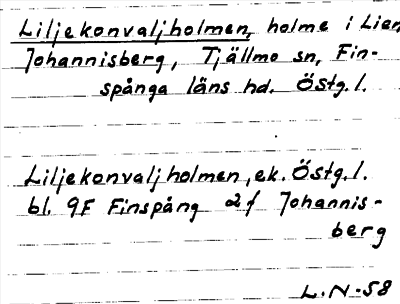 Liljekonvaljholmen, holme i Lien,
Johannisberg, Tjällmo sn, Fin-
spånga läns hd. Östg.l.
Liljekonvaljholmen, ek. Östg.l.
bl. 9F Finspång 2f Johannis-
berg
L.N-58